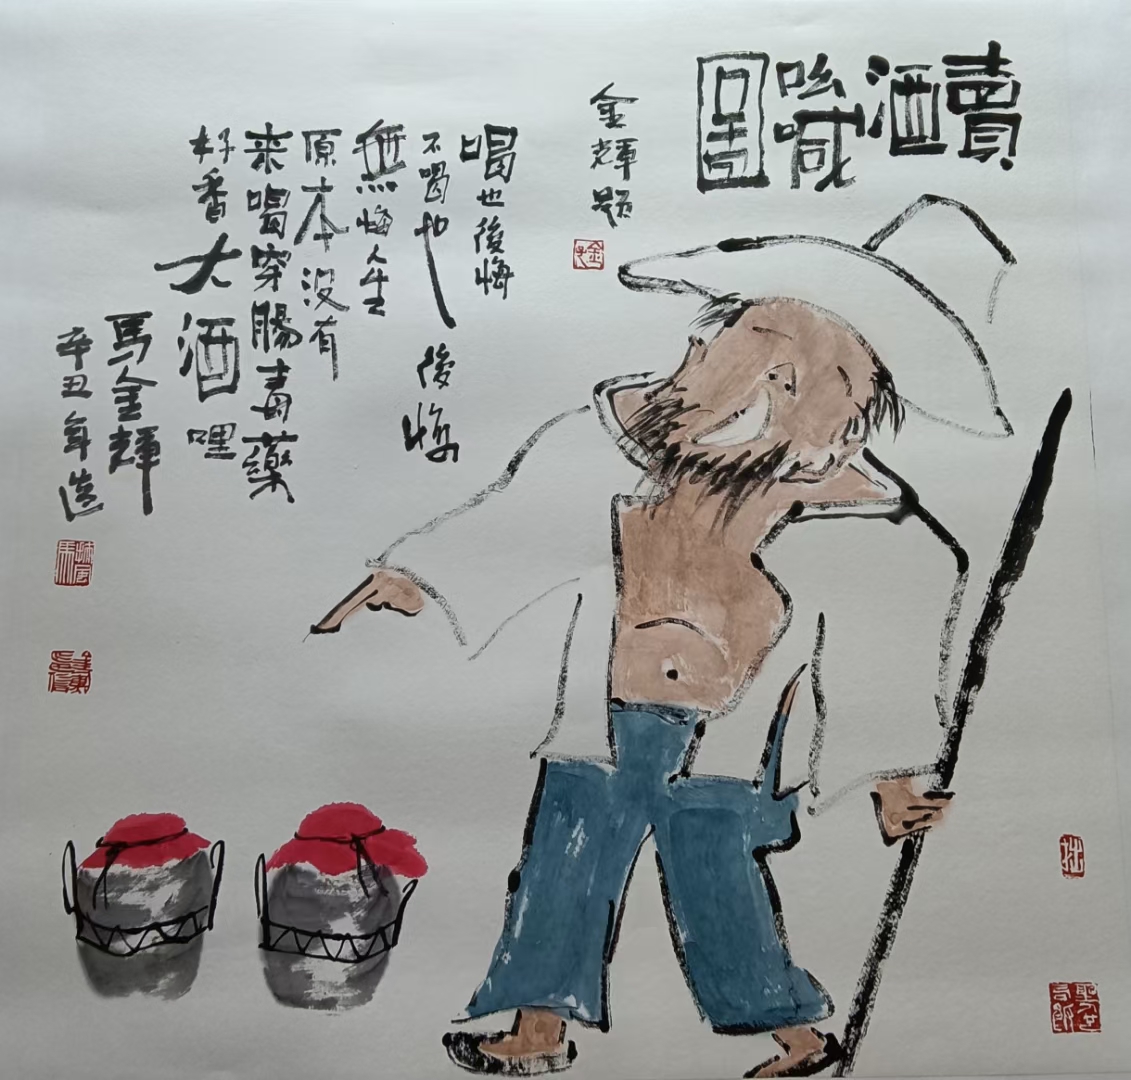 賣酒吆喊圖
金輝題
喝也後悔
不喝也後悔
無悔人生
原本没有
来喝穿腸毒藥
好香大酒哩
馬金輝
辛丑年造
拙